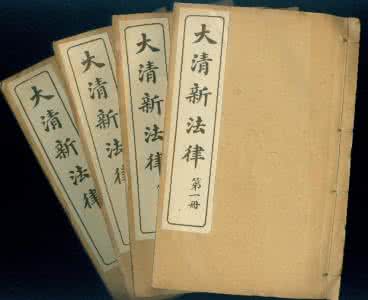 大清新法律
大清新法律
大清新法律
大清新法律
第一册